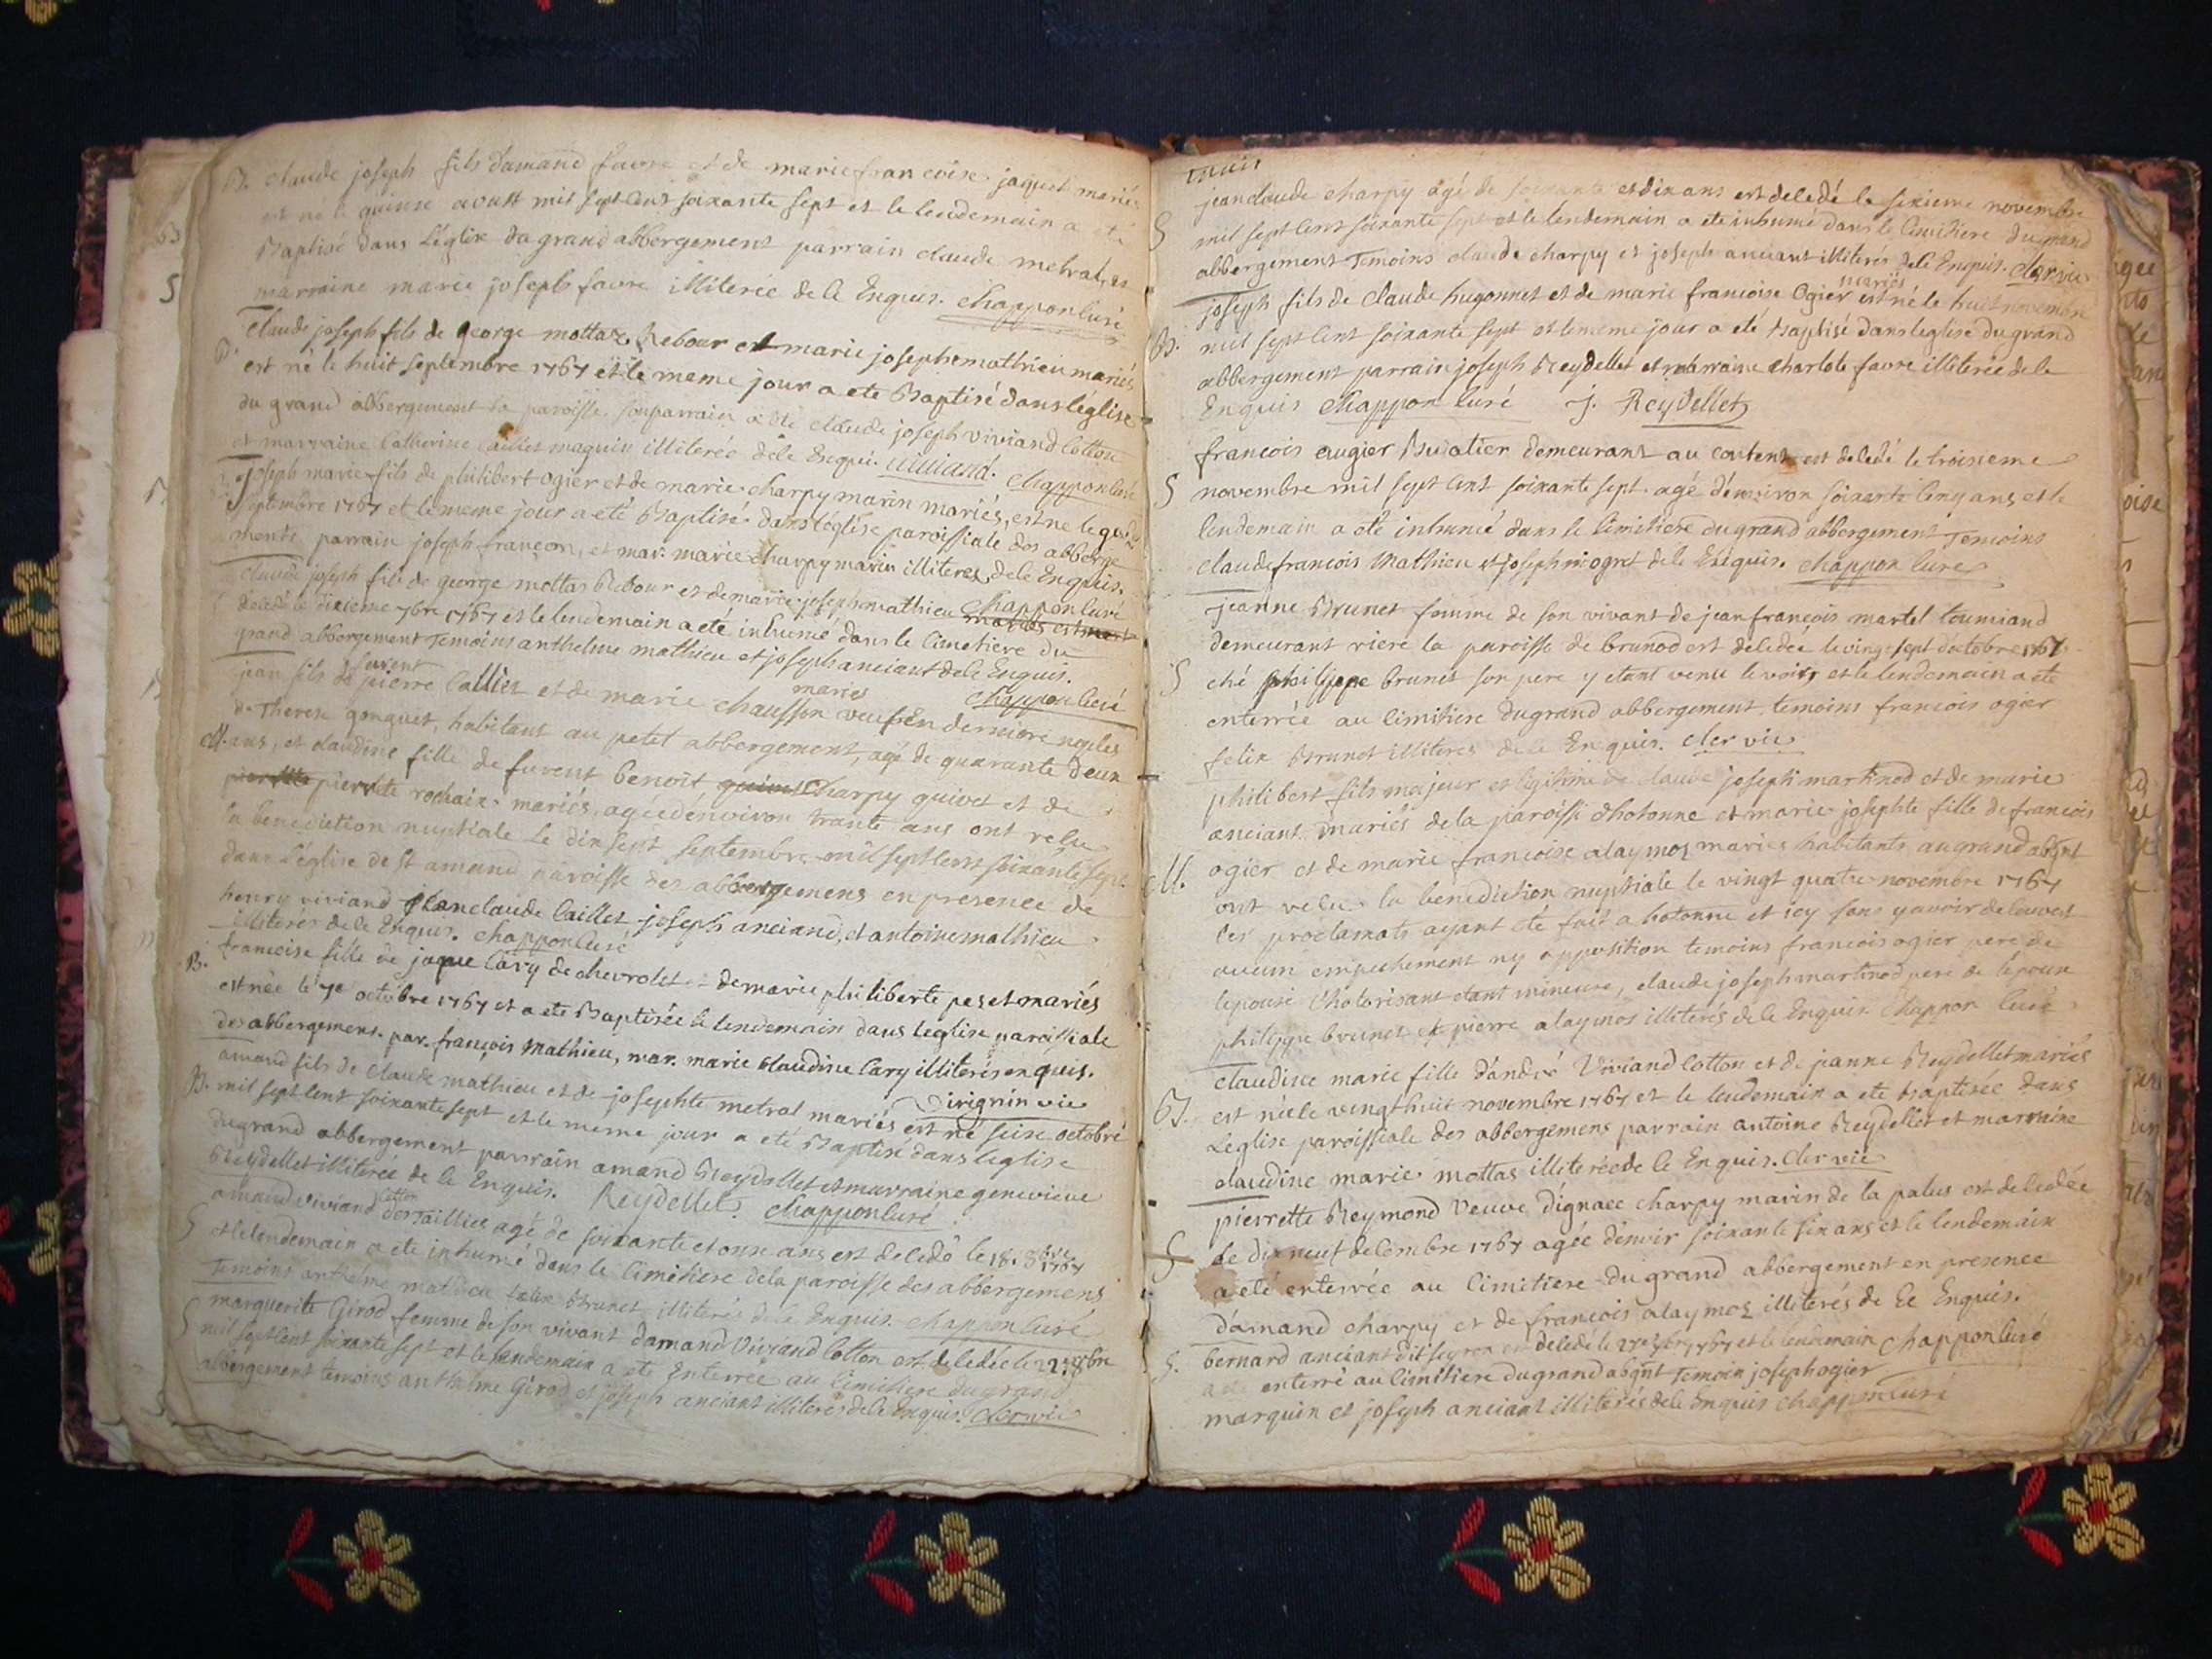 B. claude joseph fils damand favre et de marie francoise jaquet mariés
est né le quinse aoust mil sept cent soixante sept et le lendemain a eté
Baptisé dans l'église du grand abbergement parrain claude metral, et
marraine marie joseph favre illiterée de ce Enquis. chappon curé
B. claude joseph fils de george mottaz Rebour et marie josephe mathieu mariés
est né le huit septembre 1767 et le meme jour a ete Baptisé dans l'église
du grand abbergement sa paroisse, son parrain a été claude joseph viviand cotton
et marraine Catherine caillet maquin illiterée de ce Enqui. viviand. chappon curé
joseph marie fils de philibert ogier et de marie charpy marin mariés, est ne le
septembre 1767 et le meme jour a eté Baptisé dans l'église paroissiale des abberge
ments, parrain joseph françon, et mar. marie charpy marin illiteres, de ce Enquis.
chappon curé
claude joseph fils de george mottas Rebour et de marie josephe mathieu mariés est mort
decedé le dixieme 7bre 1767 et le lendemain a eté inhumé dans le cimetiere du
grand abbergement Temoins anthelme mathieu et joseph anciant de ce Enquis.
chappon curé
jean fils de furent pierre caillet et de marie chausson mariés veuf En derniere noples
de Therese gonguet, habitant au petit abbergement, agé de quarante deux
M. ans, et claudine fille de furent benoît, quivet Charpy quivet et de
pierrette pierrette rochaix mariés, agée d'environ trante ans ont recu
la benediction nuptiale le dix sept septembre mil sept cent soixante sept
dans l'église de st amand paroisse des abbergemens en presence de
henry viviand jean claude caillet joseph anciand, et antoine mathieu
illiterés de ce Enquis. chappon curé
B. francoise fille de jaque Cary de chevrolet et de marie philiberte peset mariés
est née le 7e octobre 1767 et a ete Baptisée le lendemain dans l'eglise paroissiale
des abbergement. par. françois Mathieu, mar. marie Claudine Cary illiterés enquis.
Dirignin vic
amand fils de claude mathieu et de josephte metral mariés est né seise octobre
B. mil sept cent soixante sept et le meme jour a eté Baptisé dans l'eglise
du grand abbergement parrain amand Reydellet et marraine genevieve
Reydellet illiterée de ce Enquis. Reydellet. chappon curé
S amand viviand cotton des Taillies agé de soixante et onse ans est decedé le 18. 8bre 1767
et le lendemain a ete inhumé dans le cimitiere de la paroisse des abbergemens
Temoins anthelme mathieu felix Brunet illiterés de ce Enquis. chappon curé
S marguerite Girod femme de son vivant damand Viviand Cotton est decedée le 22. 8bre
mil sept cent soixante sept et le lendemain a ete Enterrée au cimitiere du grand
abbergement temoins anthelme Girod et joseph anciant illiterés de ce Enquis. clerc vic
jean claude charpy agé de soixante et dix ans est decedé le sixieme novembre
S mil sept cent soixante sept et le lendemain a ete inhumé dans le cimitiere du grand
abbergement Temoins claude charpy et joseph anciant illiterés de ce Enquis. clerc vic
joseph fils de claude hugonnet et de marie francoise Ogier mariés est né le huit novembre
B. mil sept cent soixante sept et le meme jour a eté Baptisé dans l'eglise du grand
abbergement parrain joseph Reydellet et marraine charlote favre illiterée de ce
Enquis chappon curé j. Reydellet
francois augier Budatier demeurant au coutent est decedé le troisieme
S novembre mil sept cent soixante sept agé d'environ soixante cinq ans, et le
lendemain a été inhumé dans le cimitiere du grand abbergement Temoins
claude francois Mathieu et joseph miogret de ce Enquis. chappon curé
jeanne Brunet femme de son vivant de jean françois martel toumiand
demeurant riere la paroisse de brunod est decedée le vingt sept doctobre 1767
S ché philippe brunet son pere y etant venu le voir, et le lendemain a ete
enterrée au cimitiere du grand abbergement, temoins francois ogier
felix Brunet illiteres de ce Enquis. clerc vic
philibert fils majeur et legitime de claude joseph martinod et de marie
anciant mariés de la paroisse d'hotonne et marie josephte fille de francois
M. ogier et de marie francoise alaymoz mariés habitants au grand abgnt
ont recu la benediction nuptiale le vingt quatre novembre 1767
les proclamats ayant eté fait a hotonne et icy sans y avoir decouvert
aucun empechement ny opposition temoins francois ogier pere de
lepouse l'hotorisant etant mineure, claude joseph martinod pere de lépoux
philippe brunet et pierre alaymos illiterés de ce Enquis chappon curé
claudine marie fille d'andré Viviand Cotton et de jeanne Reydellet mariés
B. est née le vingt huit novembre 1767 et le lendemain a ete Baptisée dans
L'eglise paroissiale des abbergemens parrain antoine Reydellet et marraine
claudine marie mottas illiterée de ce Enquis. clerc vic
pierrette Reymond veuve d'ignace charpy marin de la palus est decedée
S le dix neuf decembre 1767 agée denvir soixante six ans et le lendemain
a eté enterrée au cimitiere du grand abbergement en presence
d'amand charpy et de francois alaymoz illiterés de ce Enquis.
chappon curé
S. bernard anciant dit est decedé le 27e 1767 et le lendemain
a ete enterré au cimitiere du grand abgnt Temoin joseph ogier
marquin et joseph anciant illiterés de ce Enquis chappon curé